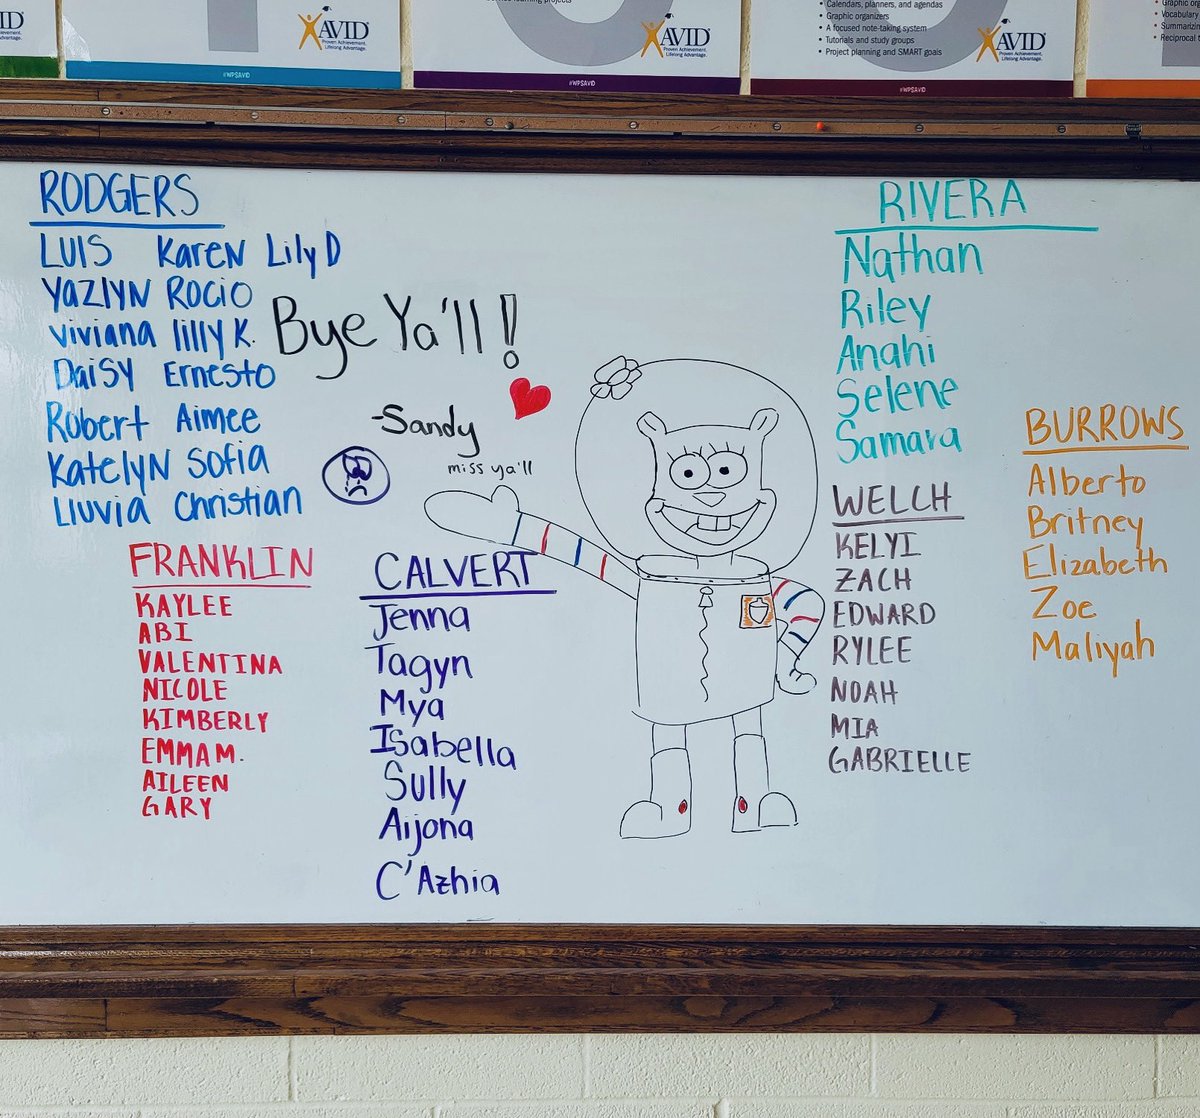 AVID
Proven Achievement.
Lifelong Advantage.
#WPSAVID
AVID
Proven Achievement.
Lifelong Advantage.
#WPSAVID
• Calendars, planners, and agendas
• Graphic organizers
• A focused note-taking system
• Tutorials and study groups
• Project planning and SMART goals
AVID
Proven Achievement.
Lifelong Advantage.
#WPSAVID
• Vocabulary
RODGERS
LUIS Karen Lily D
YAZLYN ROCIO
Viviana lilly K.
DaiSY Ernesto
Robert Aimee
KatelyN Sofia
Lluvia Christian
Bye Ya'll!
-Sandy
miss ya'll
FRANKLIN
KAYLEE
ABI
VALENTINA
NICOLE
KIMBERLY
EMMA M.
AILEEN
GARY
CALVERT
Jenna
Tagyn
Mya
Isabella
Sully
Aijona
C'Azhia
RIVERA
Nathan
Riley
Anahi
Selene
Samara
WELCH
KELYI
ZACH
EDWARD
RYLEE
NOAH
MIA
GABRIELLE
BURROWS
Alberto
Britney
Elizabeth
Zoe
Maliyah